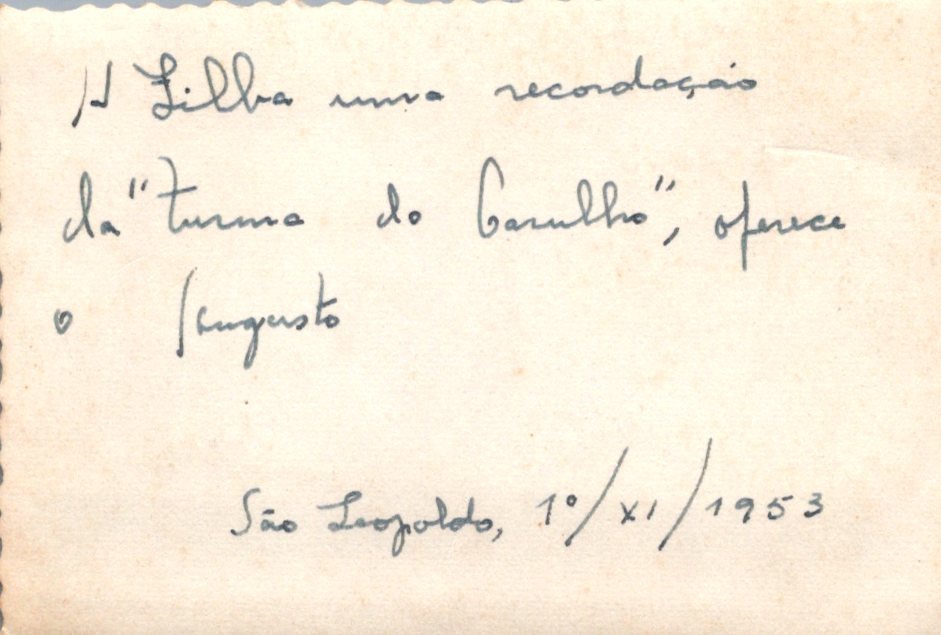 A uma recordação
da "turma do barulho", oferece
o Augusto
São Leopoldo, 1º/XI/1953